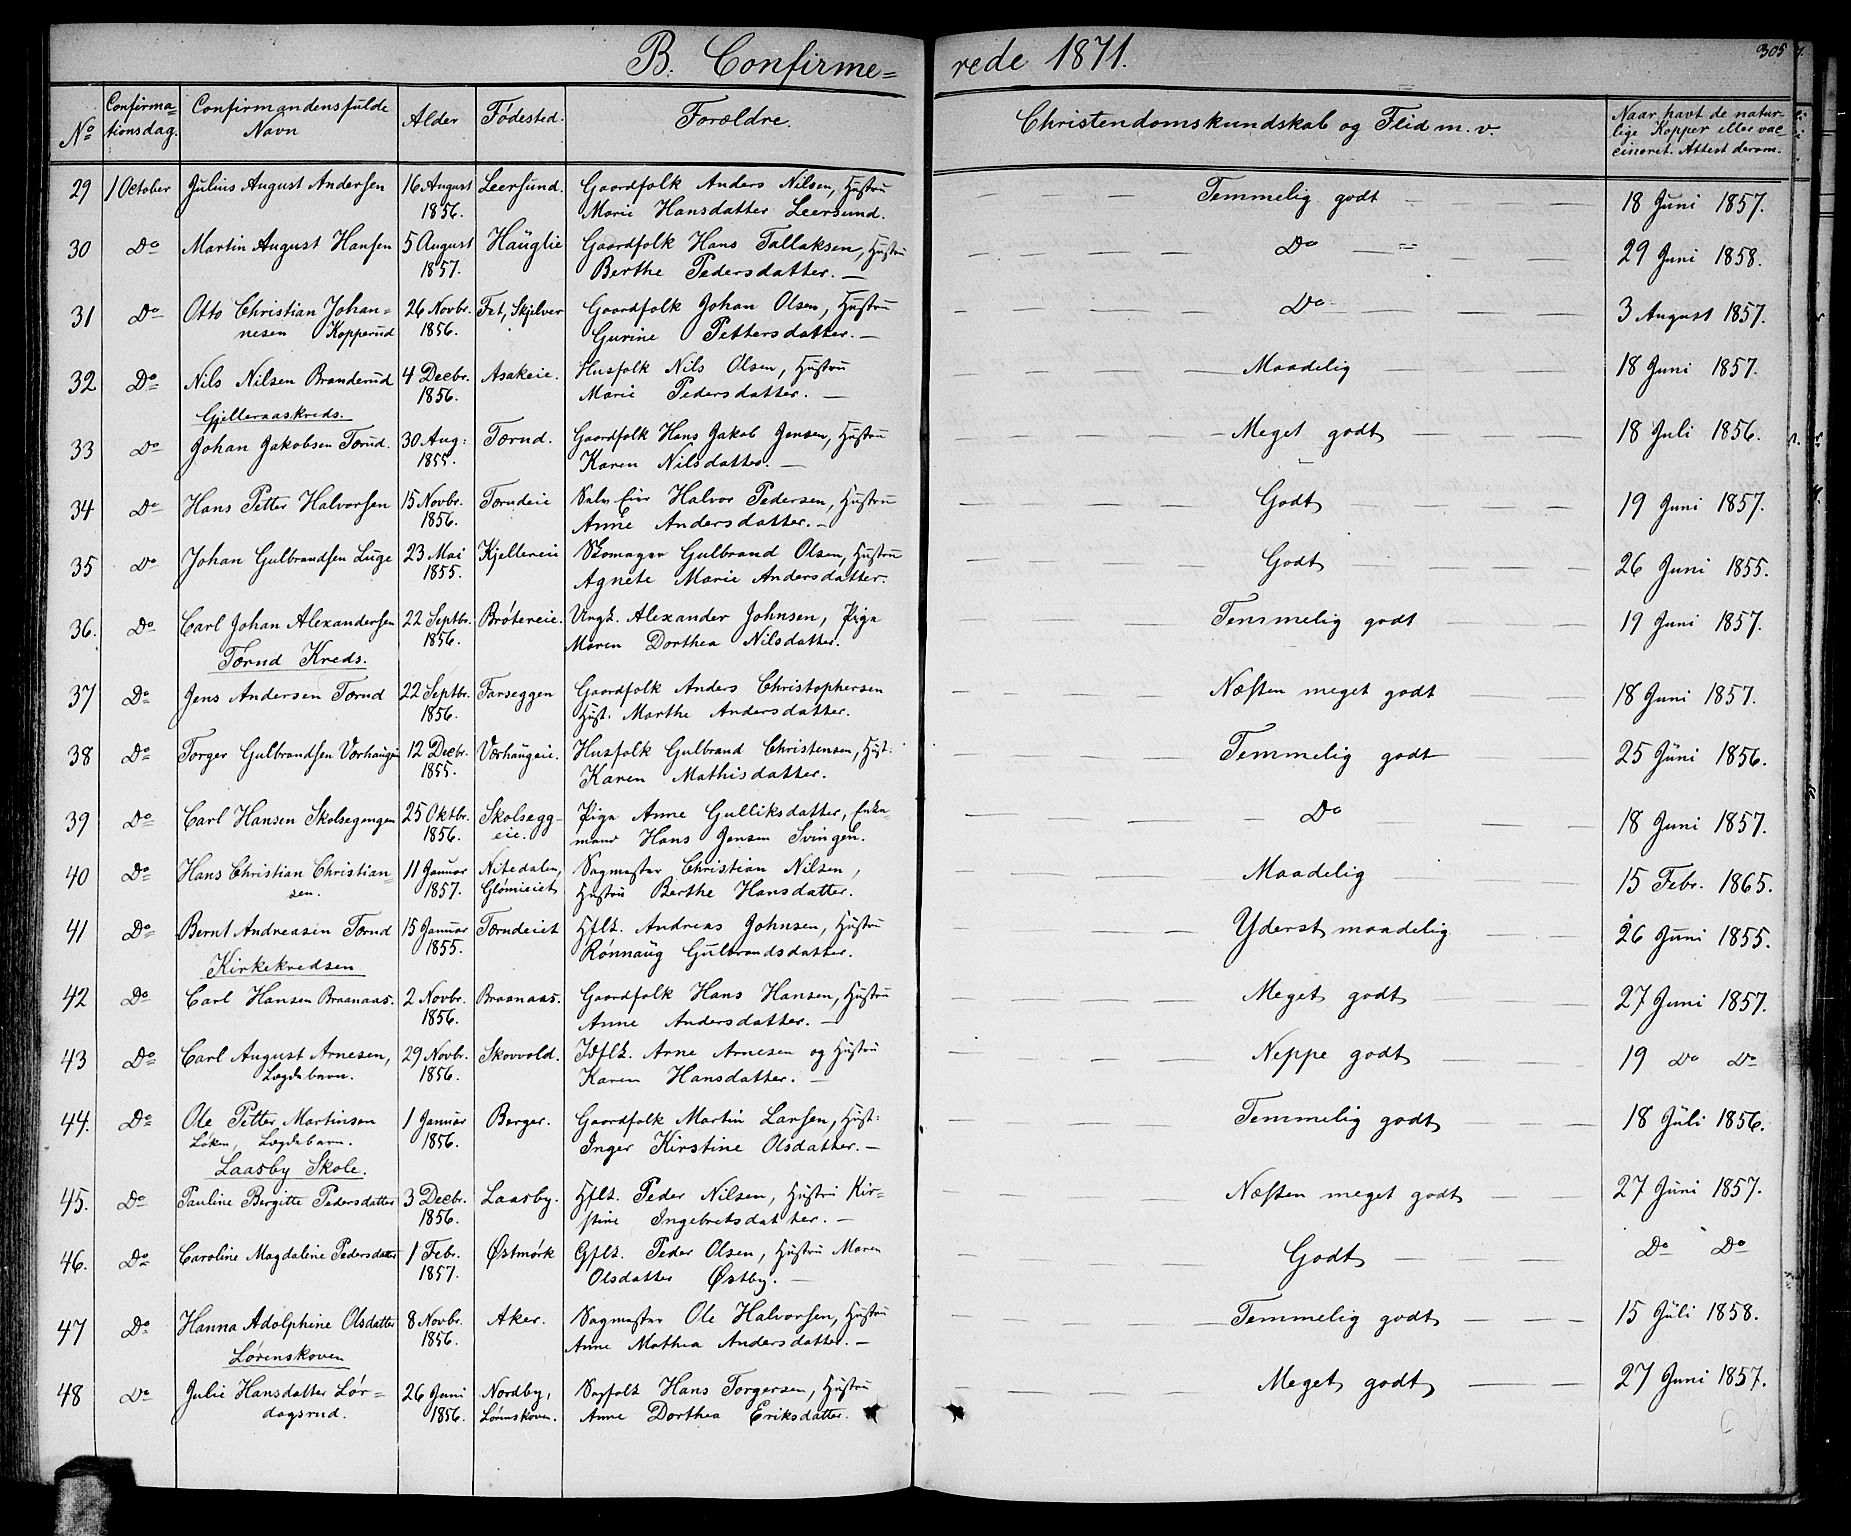 B. Confirme= rede 1871. 305
No Confirma=tionsdag. Confirmandens fulde Navn Alder Fødested. Forældre. Christendomskundskab og Flid m. v. Naar havt de natur-lige Kopper eller vac-cineret. Attest derom.
29 1 October Julius August Andersen 16 August Leersund. Gaardfolk Anders Nilsen, Hustru Temmelig godt 18 Juni 1857.
1856. Marie Hansdatter Leersund.
30 Do Martin August Hansen 5 August Hauglie Gaardfolk Hans Tallaksen, Hustru Do 29 Juni 1858.
1857. Berthe Pedersdatter.
31 Do Otto Christian Johan= 26 Novbr. Fet, Skjelver Gaardfolk Johan Olsen, Hustru Do 3 August 1857.
nesen Kopperud 1856. Gurine Pettersdatter.
32 Do Nils Nilsen Branderud 4 Decbr. Asakeie. Husfolk Nils Olsen, Hustru Maadelig 18 Juni 1857.
1856. Marie Pedersdatter.
Gjelleraaskreds.
33 Do Johan Jakobsen Tærud. 30 Aug: Tærud. Gaardfolk Hans Jakob Jensen, Hustru Meget godt 18 Juli 1856.
1855. Karen Nilsdatter.
34 Do Hans Petter Halvorsen 15 Novbr. Tærudeie Halvor Pedersen, Hustru Godt 19 Juni 1857.
1856. Anne Andersdatter.
35 Do Johan Gulbrandsen Luge 23 Mai Kjellereie Skomager Gulbrand Olsen, Hustru Godt 26 Juni 1855.
1855. Agnete Marie Andersdatter.
36. Do Carl Johan Alexandersen 22 Septbr. Brøtereie. Ungk. Alexander Johnsen, Piga Temmelig godt 19 Juni 1857.
1856. Maren Dorthea Nilsdatter.
Tærud Kreds.
37 Do Jens Andersen Tærud 22 Septbr. Farseggen Gaardfolk Anders Christophersen Næsten meget godt 18 Juni 1857.
1856. Hust. Marthe Andersdatter.
38 Do Torger Gulbrandsen Vorhaugen 12 Decbr. Vorhaugeie. Husfolk Gulbrand Christensen, Hust. Temmelig godt 25 Juni 1856.
1855. Karen Mathisdatter.
39 Do Carl Hansen Skolsegengen 25 Oktbr. Skolsegg- Piga Anne Gulliksdatter, Enke- Do 18 Juni 1857.
1856. eie. mand Hans Jensen Svingen.
40 Do Hans Christian Christian= 11 Januar Nitedalen, Sagmester Christian Nilsen, Maadelig 15 Febr. 1865.
sen. 1857. Glømieiet Hustru Berthe Hansdatter.
41 Do Bernt Andreasen Tærud 15 Januar Tærudeiet Hflk. Andreas Johnsen, Hustru Yderst maadelig 26 Juni 1855.
1855. Rønnaug Gulbrandsdatter.
Kirkekredsen
42 Do Carl Hansen Braanaas. 2 Novbr. Braanaas. Gaardfolk Hans Hansen, Hustru Meget godt 27 Juni 1857.
1856. Anne Andersdatter.
43 Do Carl August Arnesen, 29 Novbr. Skovvold. Idflk. Arne Arnesen og Hustru Neppe godt 19 Do Do
Lægdsbarn. 1856. Karen Hansdatter.
44. Do Ole Petter Martinsen 1 Januar Berger. Gaardfolk Martin Larsen, Hust: Temmelig godt 18 Juli 1856.
Løken, Lægdebarn. 1856. Inger Kirstine Olsdatter.
Laasby Skole.
45. Do Pauline Bergitte Pedersdatter 3 Decbr. Laasby. Hflk. Peder Nilsen, Hustru Kir= Næsten meget godt 27 Juni 1857.
1856. stine Ingebretsdatter.
46. Do Caroline Magdaline Pedersdatter 1 Febr. Østmørk Gflk. Peder Olsen, Hustru Maren Godt Do Do
1857. Olsdatter Østby.
47 Do Hanna Adolphine Olsdatter 8 Novbr. Aker. Sagmester Ole Halvorsen, Hustru Temmelig godt 15 Juli 1858.
1856. Anne Mathea Andersdatter.
Lørenskoven
48 Do Julie Hansdatter Lør= 26 Juni Nordby, Hans Torgersen, Hustru Meget godt 27 Juni 1857.
dagsrud. 1856. Lørenskoven. Anne Dorthea Eriksdatter.